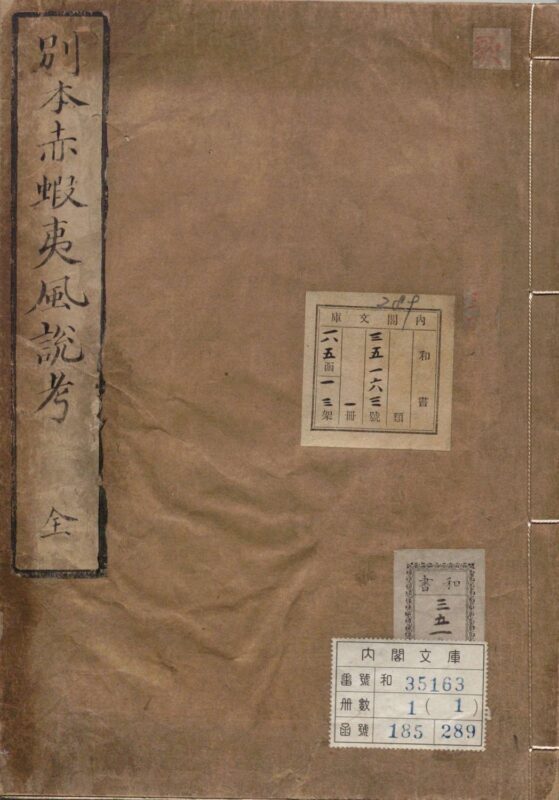 別本赤蝦夷風説考
全
289
内閣文庫
和書
類
三五一六三號
一冊
一八五函
一三架
和書
三五一
内閣文庫
番號 和 35163
册數 1 ( 1 )
函號 185 289